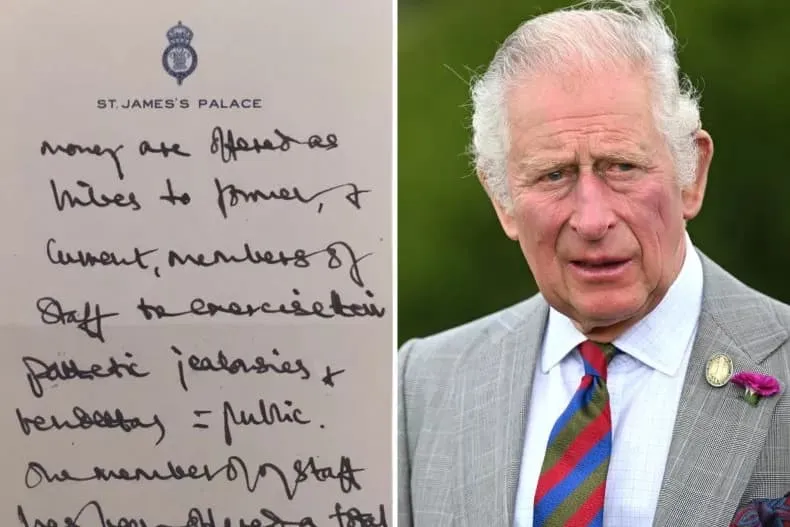 ST. JAMES'S PALACE
money are offered as
bribes to former, +
current, members of
staff to exercise their
pathetic jealousies +
vendettas = public.
One member of staff
has been offered a total